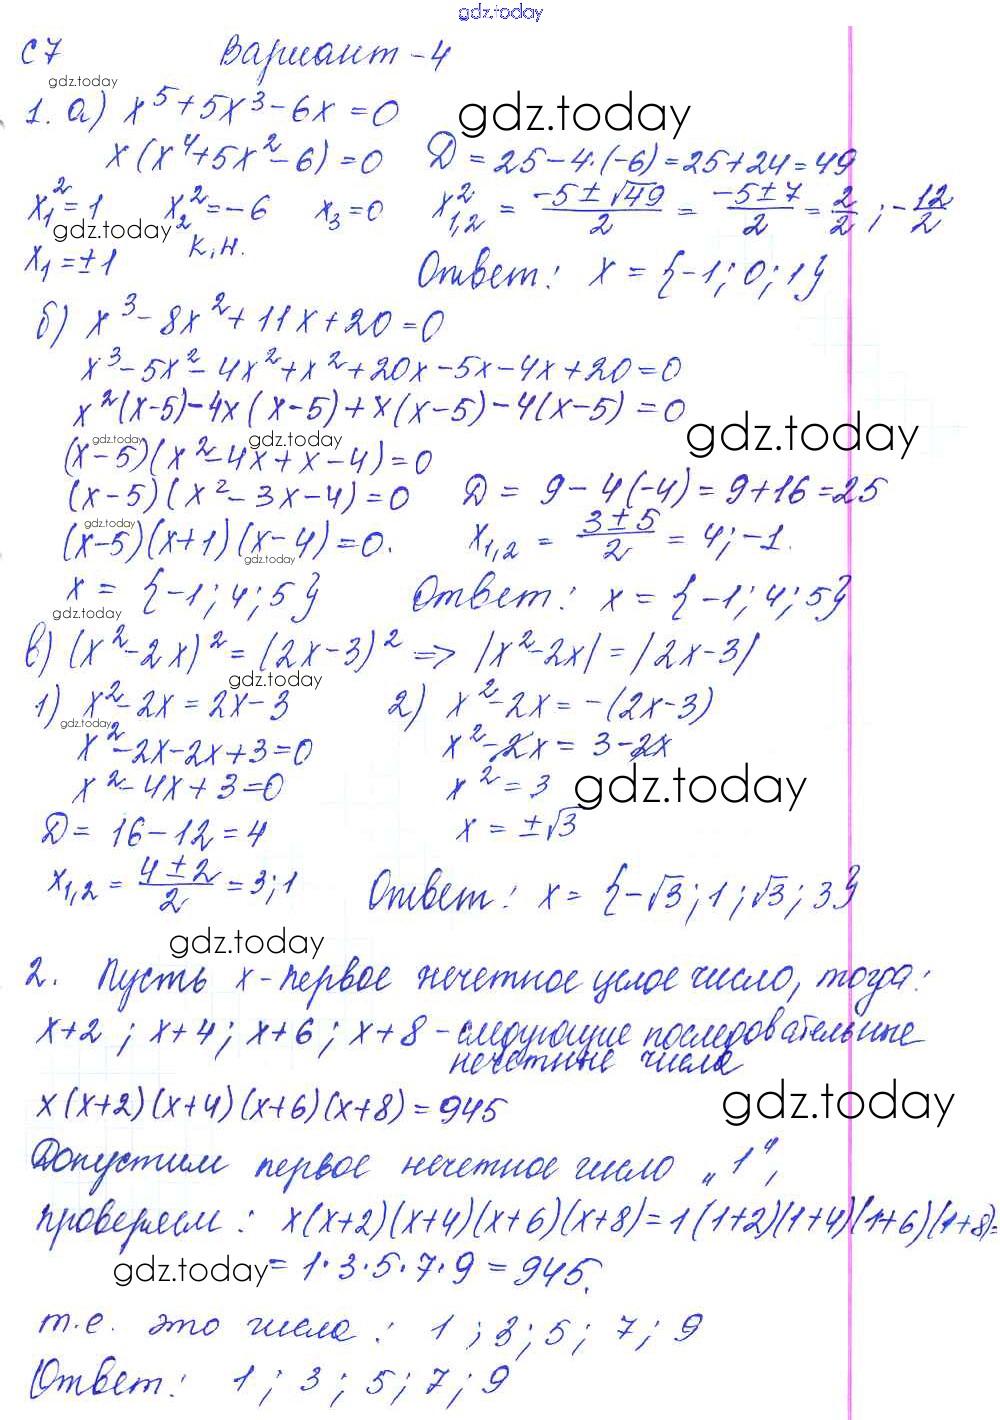 gdz.today
С7 Вариант-4
gdz.today
1. а) x⁵+5x³-6x=0
gdz.today
x(x⁴+5x²-6)=0 Д=25-4·(-6)=25+24=49
x₁²=1 x₂²=-6 x₃=0 x²₁,₂ = (-5±√49)/2 = (-5±7)/2 = 2/2; -12/2
gdz.today
к.н.
x₁=±1 Ответ: x={-1; 0; 1}
б) x³-8x²+11x+20=0
x³-5x²-4x²+x²+20x-5x-4x+20=0
x²(x-5)-4x(x-5)+x(x-5)-4(x-5)=0
gdz.today
gdz.today gdz.today
(x-5)(x²-4x+x-4)=0
(x-5)(x²-3x-4)=0 Д= 9-4(-4)=9+16=25
gdz.today
(x-5)(x+1)(x-4)=0. x₁,₂ = (3±5)/2 = 4; -1.
gdz.today
x={-1; 4; 5} Ответ: x={-1; 4; 5}
gdz.today
в) (x²-2x)²=(2x-3)² => |x²-2x|=|2x-3|
gdz.today
1) x²-2x=2x-3 2) x²-2x=-(2x-3)
gdz.today
x²-2x-2x+3=0 x²-2x=3-2x
x²-4x+3=0 x²=3
gdz.today
Д=16-12=4 x=±√3
x₁,₂ = (4±2)/2 = 3; 1 Ответ: x={-√3; 1; √3; 3}
gdz.today
2. Пусть x-первое нечетное целое число, тогда:
x+2; x+4; x+6; x+8-следующие последовательные
нечетные числа
x(x+2)(x+4)(x+6)(x+8)=945
gdz.today
Допустим первое нечетное число „1",
проверяем: x(x+2)(x+4)(x+6)(x+8)=1(1+2)(1+4)(1+6)(1+8)=
gdz.today
=1·3·5·7·9=945.
т.е. это числа: 1; 3; 5; 7; 9
Ответ: 1; 3; 5; 7; 9